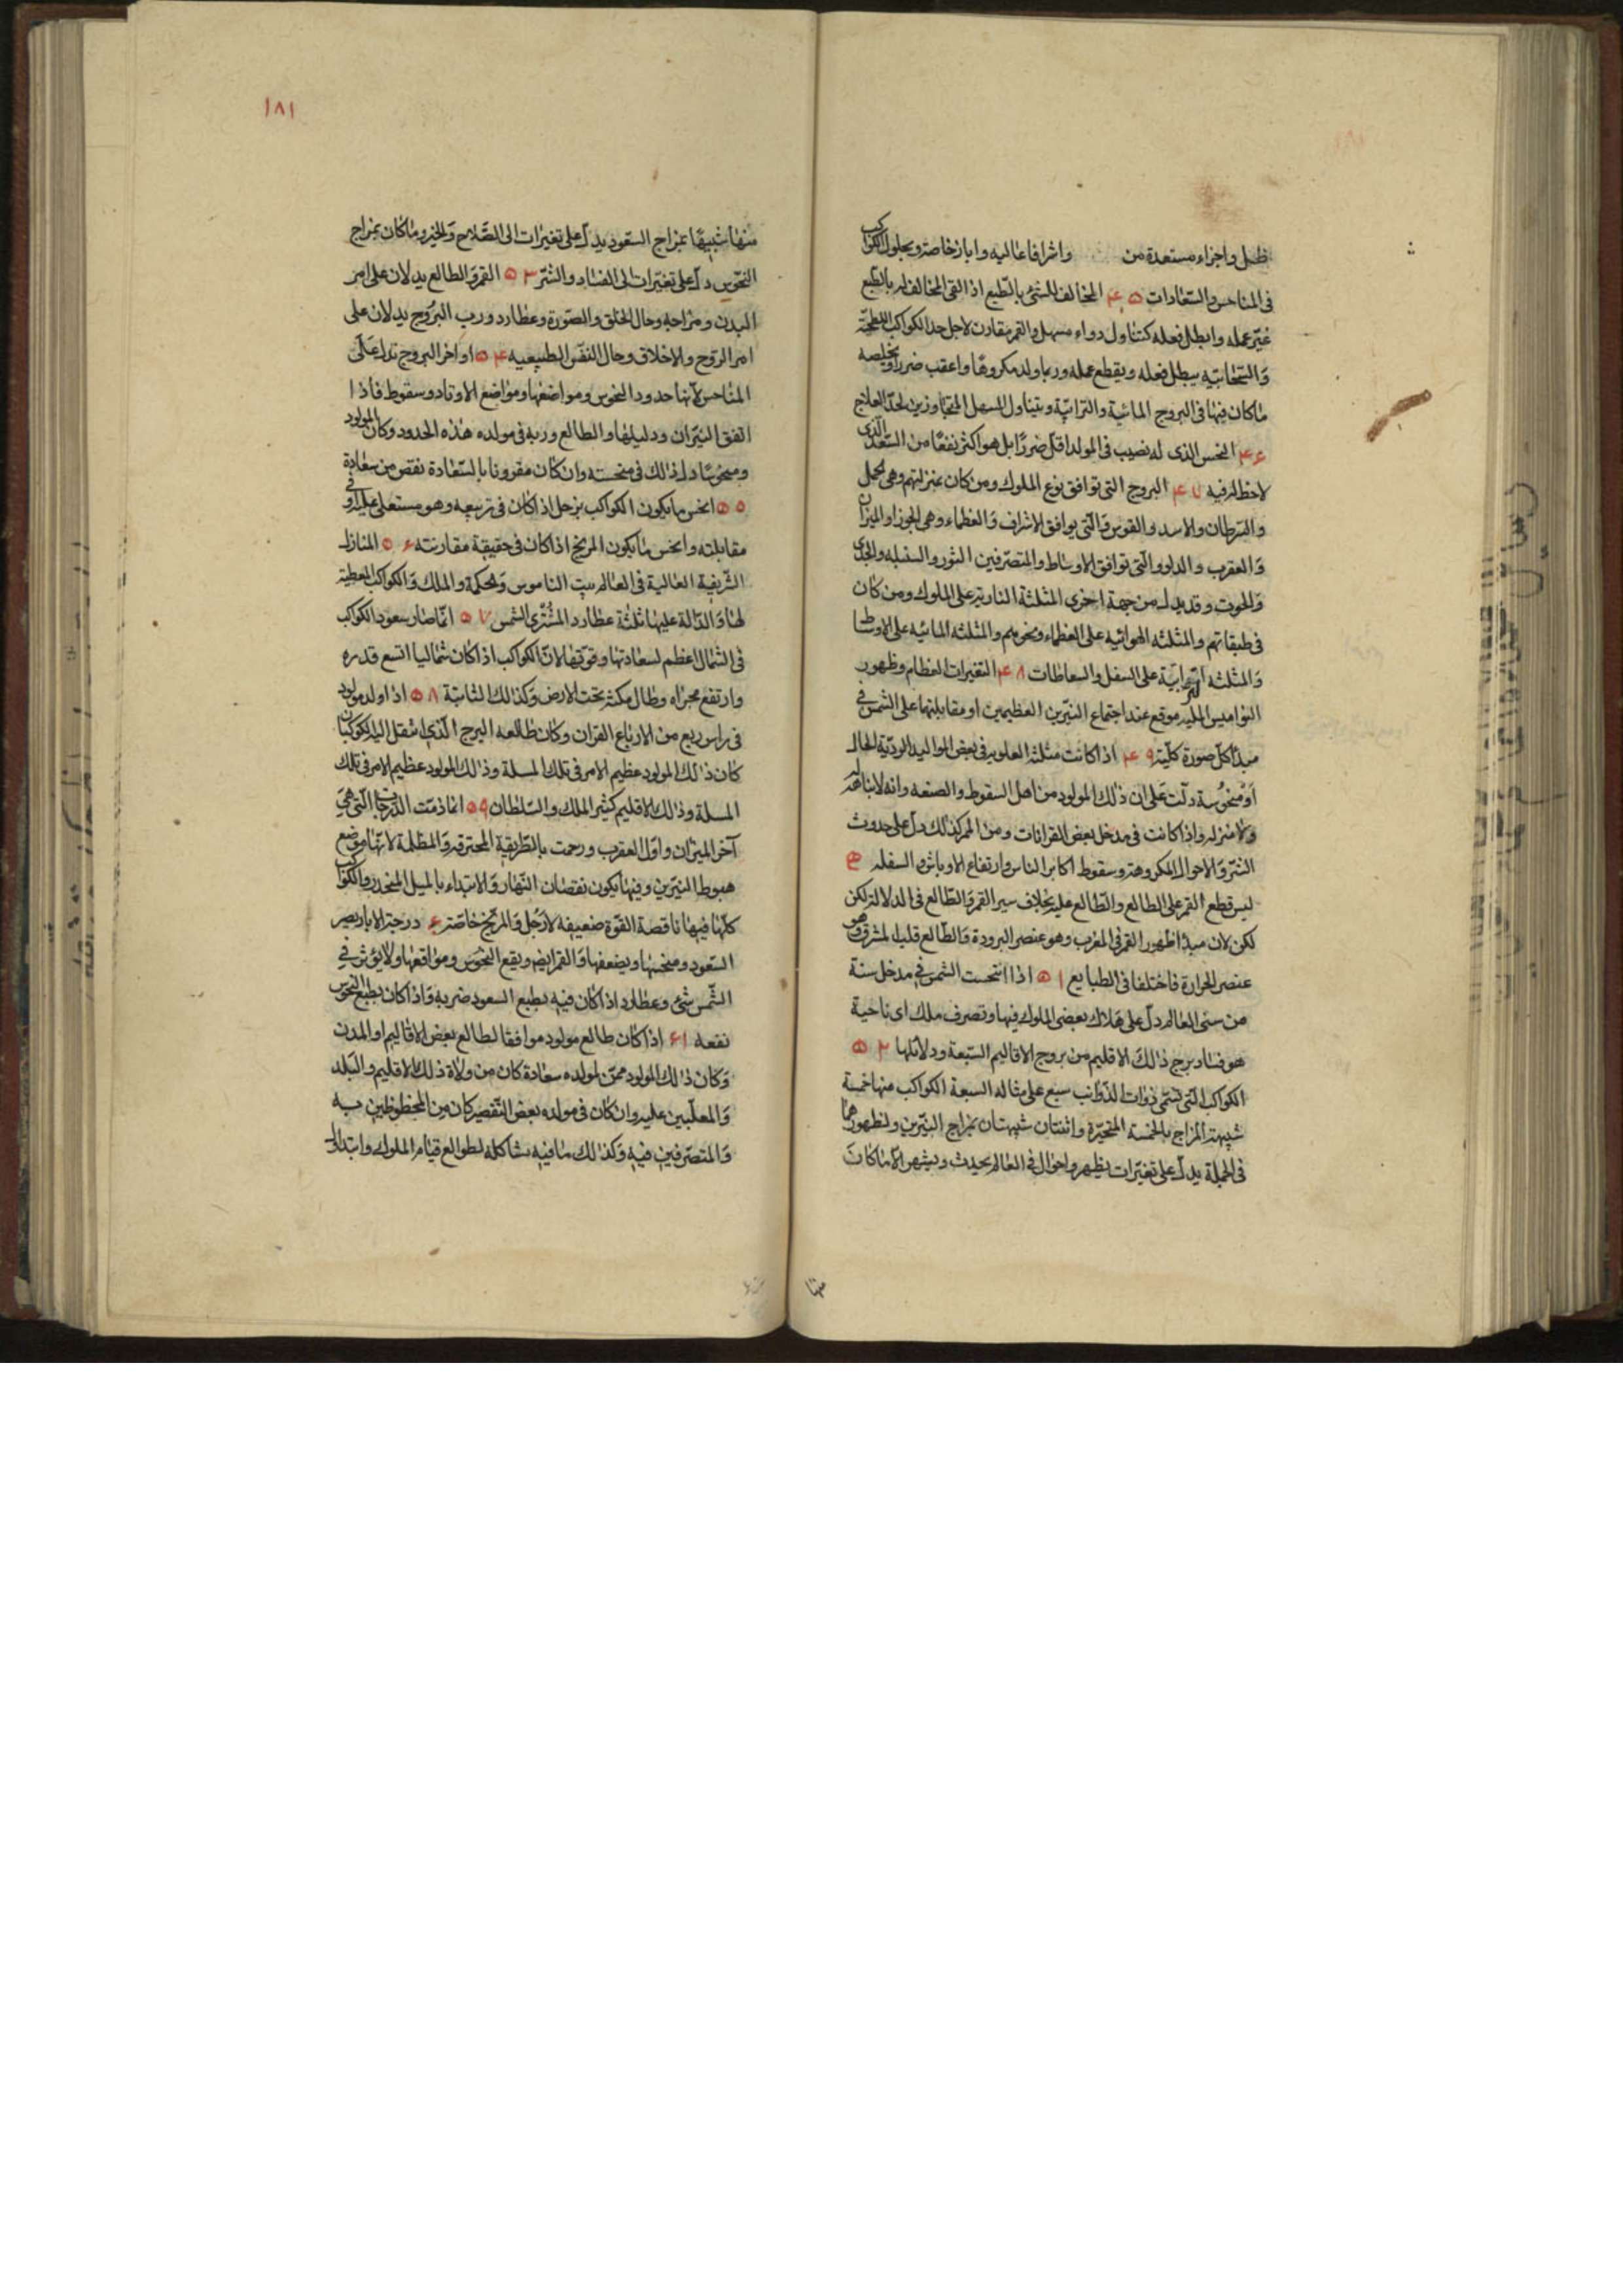 ظل واجزاء مستعدة من واشرافا عاليه وابار خاصة وبحلول الكواكب
فى المناحس والسعادات ۴۵ المخالف للشئ بالطبع اذا لقى المخالف له بالطبع
غيّر عمله وابطل فعله كتناول دواء مسهل والقمر مقارن لاجل جد الكواكب
يبطل فعله ويقطع عمله وربما ولد مكروها واعقب ضررا
ما كان فيها فى البروج المائية والترابيّة ويتناول المسهل لحدّ العلاج
۴۶ النحس الذى له نصيب فى المولد اقلّ ضررًا بل هو اكثر نفعًا من السّعد الّذى
لاحظ له فيه ۴۷ البروج التى توافق نوع الملوك ومن كان بمنزلتهم وهى الحمل
والسّرطان والاسد والقوس وَالّتى يوافق الاشراف وَالعظماء وهى الجوزا والميزان
وَالعقرب والدلو والّتى توافق الاوساط والمتصرّفين الثور والسنبله والجدى
وَالحوت وقد يدل من جهة اخرى المثلثة الناريّة على الملوك ومن كان
فى طبقاتهم والمثلثه الهوائيه على العظماء ونحوهم والمثلثه المائيه على الاوساط
وَالمثلثه الترابيّة على السفل والسقاطات ۴۸ التغيرات العظام وظهور
النواميس موقع عند اجتماع النيّرين العظيمين او مقابلتها على الشمس فى
مبدأ كلّ صورة كلّية ۴۹ اذا كانت مثلثه العلويه فى بعض المواليد الرديّة الحال
اوْ منحُوسة دلّت عَلى ان ذلك المولود من اهل السقوط والضعه وانه لا نباهة له
وَلا منزله واذا كانت فى مدخل بعض القرانات ومن الممر كذلك دلّ على حدوث
الشّرّ وَالاحوال المكروهة وسقوط اكابر الناس وارتفاع الاوباش والسفله
ليس قطع القمر على الطالع والطّالع عليه بخلاف سير القمر وَالطّالع فى الدلالة لكن
لكن لان مبدأ ظهور القمر فى المغرب وهو عنصر البرودة وَالطّالع قليل مشرق وهو
عنصر الحرارة فاختلفا فى الطبايع ۵۱ اذا انتحست الشمس فى مدخل سنة
من سنى العالم دلّ على هَلاك بعض الملوك فيها وتصرف ملك اى ناحية
هو فساد برج ذالكَ الاقليم من بروج الاقاليم السّبعة ودلائلها ۵۲
الكواكب الّتى تسمّى ذوات الذّوائب سبع على مثاله السبعة الكواكب منها خمسة
شبيهة المزاج بالخمسة المتحيّرة واثنتان شبيهتان بمزاج النيّرين ولظهورهما
فى الجملة يدلّ على تغيّرات يظهر واحوال فى العالم يحدث ويشهر الّا ما كان
منها
۱۸۱
منها شبيهًا بمزاج السّعود يدلّ على تغيرات الى الصّلاح وَالخير وما كان بمزاج
النحوس دلّ على تغيّرات الى الفساد والشرّ ۵۳ القمر وَالطالع يدلان على امر
البدن ومزاجه وحال الخلق والصّورة وعطارد ورب البرُوج يدلان على
امر الرّوح والاخلاق وحال النفس الطبيعيه ۵۴ اواخر البروج تدل عَلى
المناحس لانها حدود النحوس ومواضعها ومواضع الاوتاد وسقوط فاذا
اتّفق النيّران ودليلها والطالع وربه فى مولده هذه الحدود وكان المولود
ومنحُوسًا دل ذلك فى منحسته وان كان مقرونا بالسّعادة نقص من سعادة
۵۵ انحس ما يكون الكواكب بزحل اذا كان فى تربيعه وهو مستعلى عليه او فى
مقابلته وانحس ما يكون المريخ اذا كان فى حقيقة مقارنته ۵۶ المنازل
الشّريفية العالية فى العالم بيت الناموس وَالحكمة والملك وَالكواكب المعطية
لها وَالدّالة عليها ثلثة عطارد المشترى الشمس ۵۷ انّما صار سعود الكواكب
فى الشمال اعظم لسعادتها وقوّتها لانّ الكواكب اذا كان شماليا اتسع قدره
وارتفع مجراه وطال مكثه تحت الارض وَكذالك الثابتة ۵۸ اذا ولد مولود
فى راس ربع من الارباع القران وكان طالعه البرج الّذى انتقل اليه الكوكبان
كان ذالك المولود عظيم الامر فى تلك المسلة وذالك المولود عظيم الامر فى تلك
المسلة وذالك الاقليم كثير الملك والسّلطان ۵۹ انما ذمّت الدّرجات الّتى هى
آخر الميزان واوّل العقرب ورحمت بالطّريقة المحترقة وَالمظلمة لانّها موضع
هبوط النيّرين وفيها يكون نقصان النّهار وَالابتداء بالميل المنحدر والكواكب
كلّها فيها ناقصة القوّة ضعيفه لازحل وَالمريخ خاصّة ۶ درجة الابار يصير
السّعود ومنحسها ويضعفها وَالقمر ايضا ويقع النحوس ومواقعها ولا يؤثر فى
الشّمس شئ وعطارد اذا كان فيه بطبع السعود ضربه وَاذا كان بطبع النحوس
نفعه ۶۱ اذا كان طالع مولود موافقا لطالع بعض الاقاليم او المدن
وَكان ذالك المولود ممّن لمولده سعادة كان من ولاة ذلك الاقليم والبَلد
وَالمعلّبين عليه وان كان فى مولده بعض التّقصير كان من المحظوظين به
وَالمتصرّفين فيه وَكذالك ما فيه مشاكله لطوالع قيام الملوك وابتدال